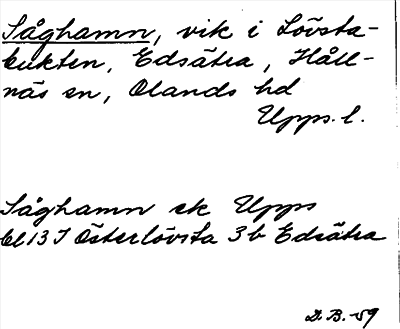 Såghamn, vik i Lövsta-
bukten, Edsätra, Håll-
näs sn, Olands hd
Upps. l.
Såghamn ek Upps
bl 13 I Österlövsta 3b Edsätra
D. B. -59